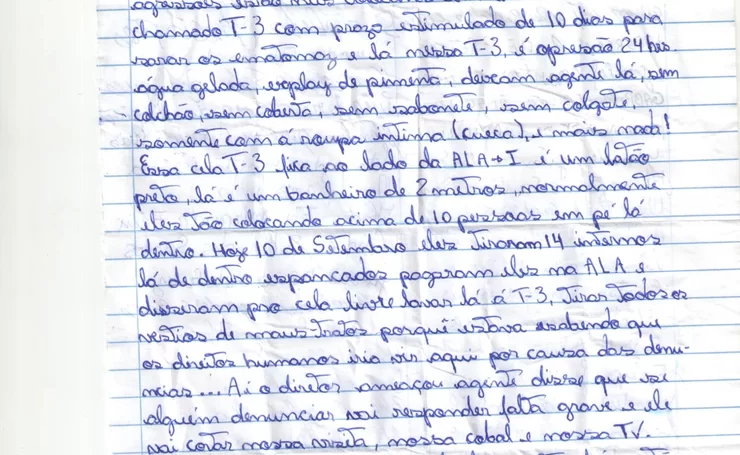 chamado T-3 com prazo estimulado de 10 dias para
sarar os ematomaz e lá nessa T-3, é opresão 24 hrs.
água gelada, esplay de pimenta, deixam agente lá, sem
colchão, sem coberta, sem sabonete, sem colgate,
somente com á roupa intima (cueca), e mais nada!
Essa cela T-3 fica ao lado da ALA→I é um latão
preto, lá é um banheiro de 2 metros, normalmente
eles tão colocando acima de 10 pessoas em pé lá
dentro. Hoje 10 de Setembro eles Tiraram 14 internos
lá de dentro espancados pogaram eles na ALA e
disseram pro cela livre lavar lá á T-3, Tirar Todos os
vestios de maus-tratos porquê estava sabendo que
os direitos humanos iria vir aqui por causa das denu-
ncias... Ai o diretor ameaçou agente disse que se
alguém denunciar vai responder falta grave e ele
vai cortar nossa visita, nossa cobal e nossa TV.